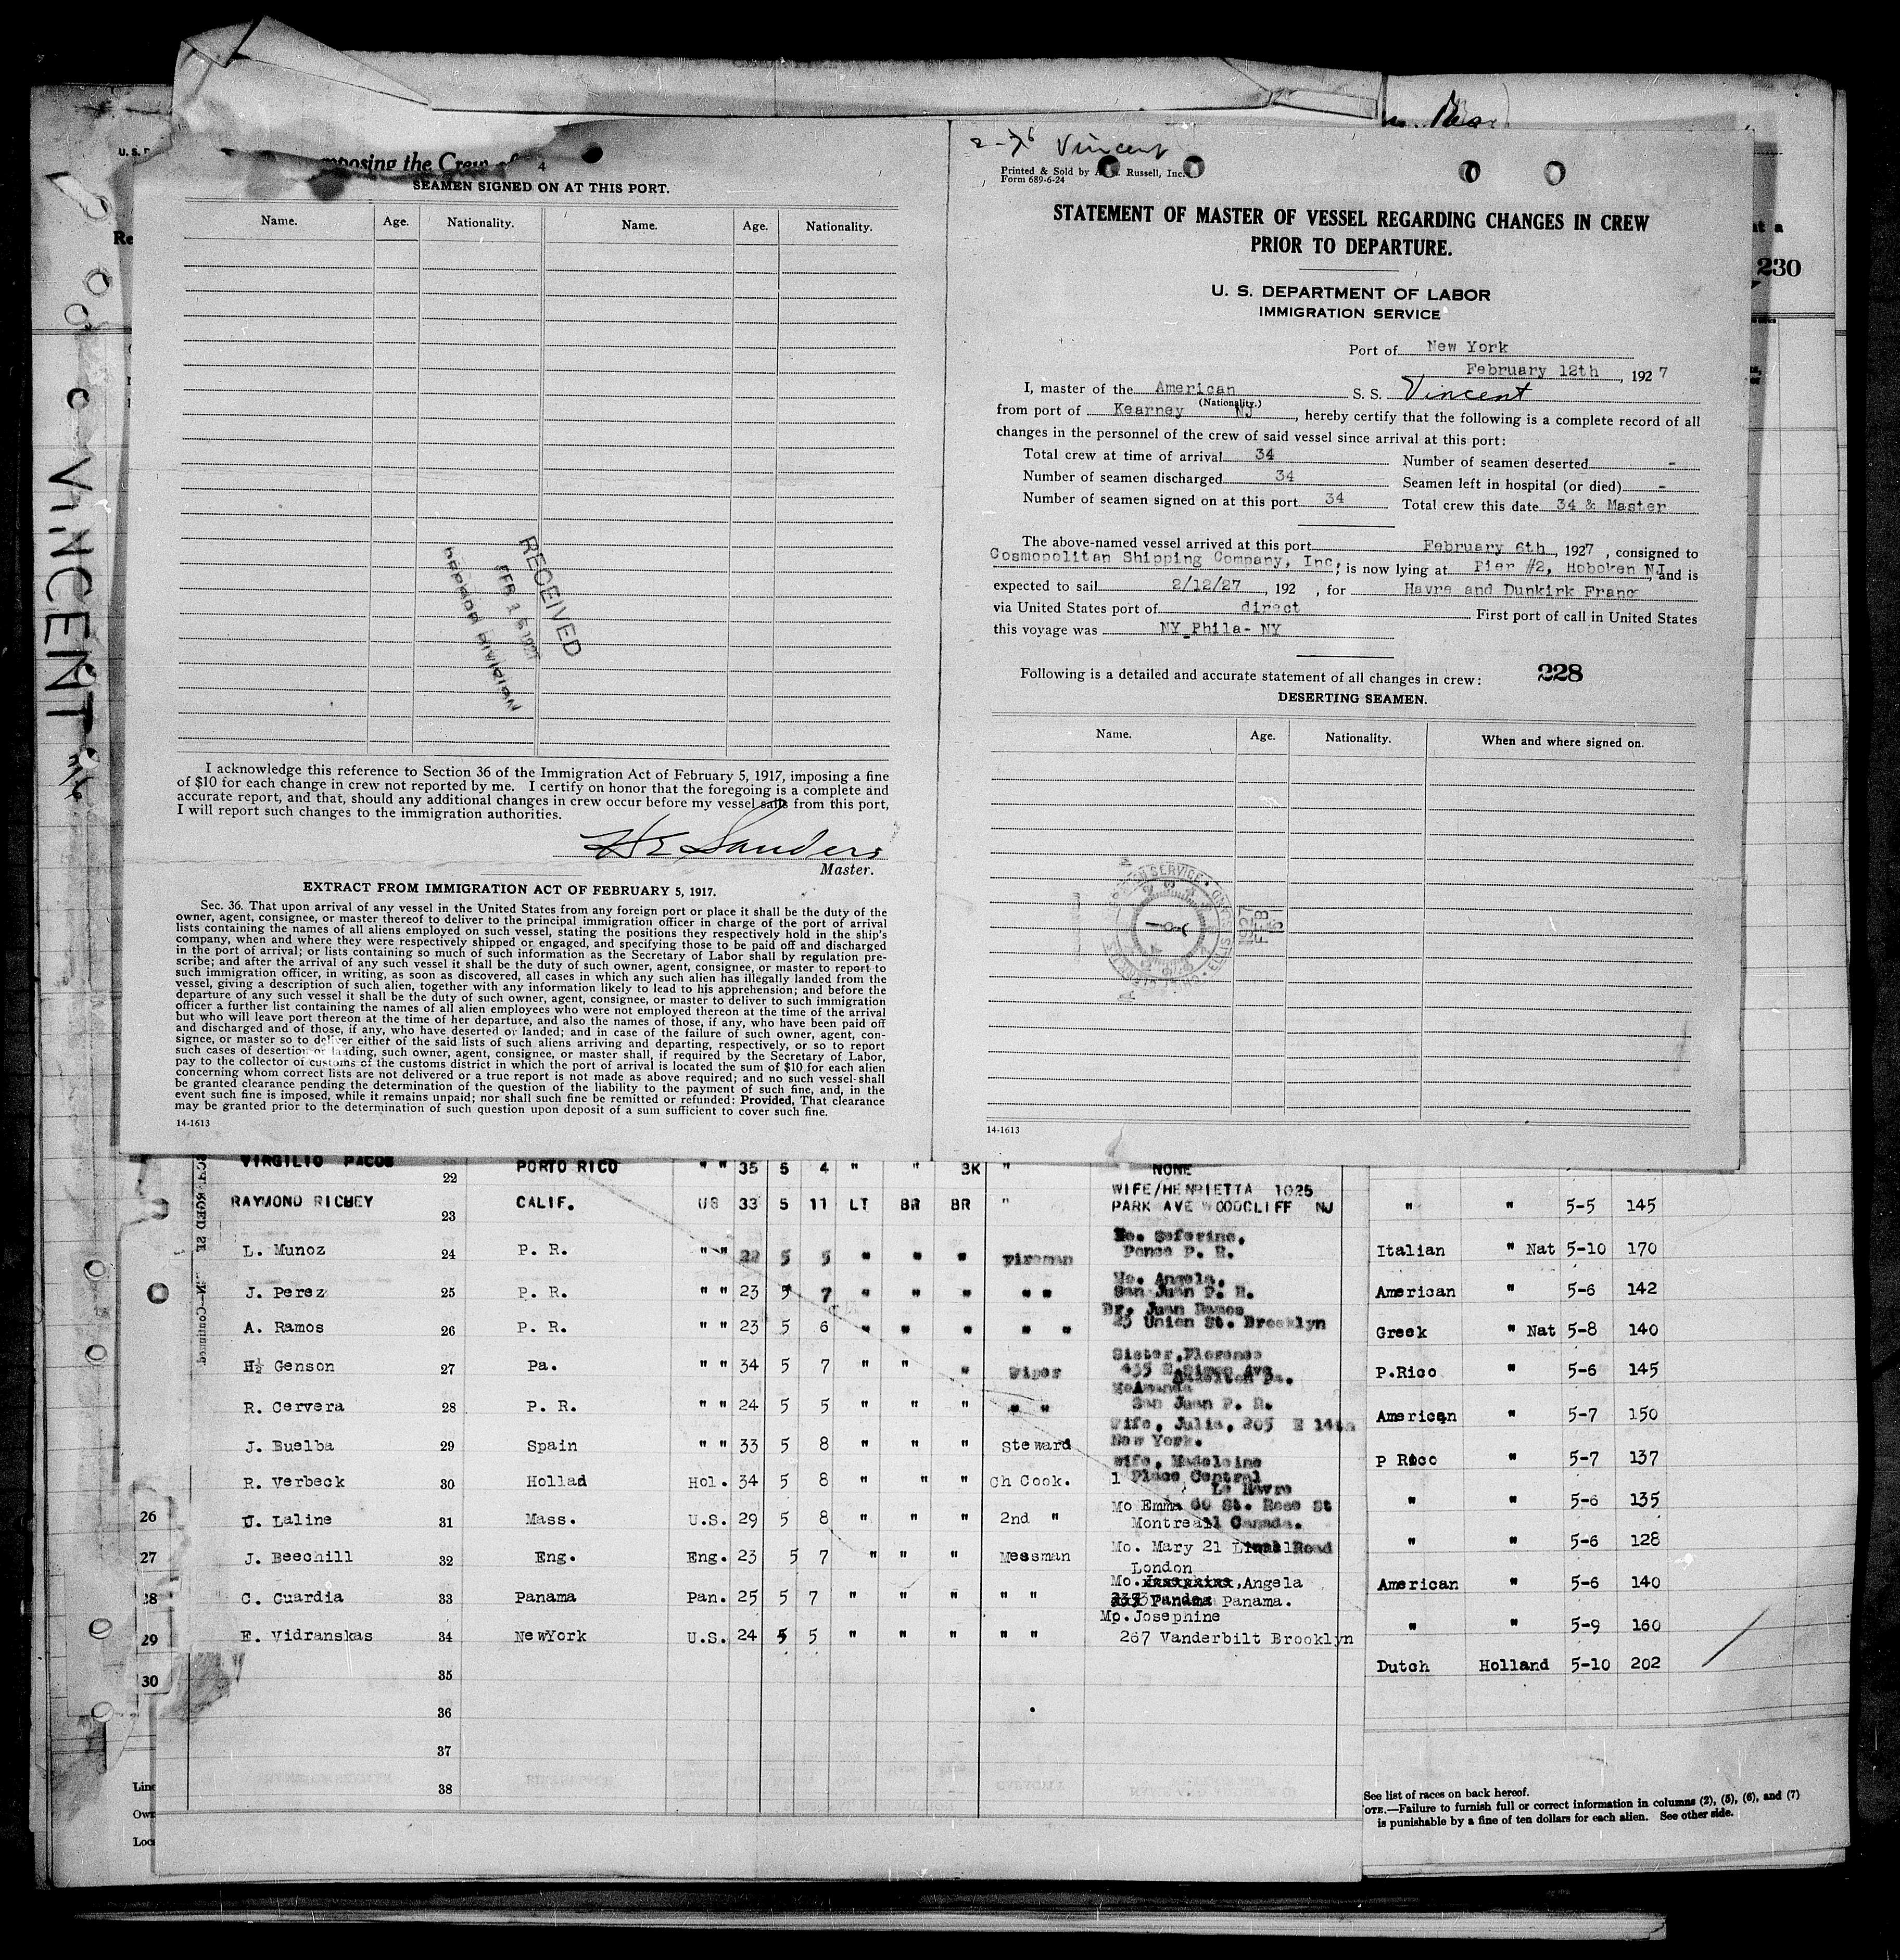 U. S.
mposing the Crew of
4
SEAMEN SIGNED ON AT THIS PORT.
Name. Age. Nationality. Name. Age. Nationality.
RECEIVED
FEB 15 1927
RECORD DIVISION
I acknowledge this reference to Section 36 of the Immigration Act of February 5, 1917, imposing a fine
of $10 for each change in crew not reported by me. I certify on honor that the foregoing is a complete and
accurate report, and that, should any additional changes in crew occur before my vessel sails from this port,
I will report such changes to the immigration authorities.
HE Sanders
Master.
EXTRACT FROM IMMIGRATION ACT OF FEBRUARY 5, 1917.
Sec. 36. That upon arrival of any vessel in the United States from any foreign port or place it shall be the duty of the
owner, agent, consignee, or master thereof to deliver to the principal immigration officer in charge of the port of arrival
lists containing the names of all aliens employed on such vessel, stating the positions they respectively hold in the ship's
company, when and where they were respectively shipped or engaged, and specifying those to be paid off and discharged
in the port of arrival; or lists containing so much of such information as the Secretary of Labor shall by regulation pre-
scribe; and after the arrival of any such vessel it shall be the duty of such owner, agent, consignee, or master to report to
such immigration officer, in writing, as soon as discovered, all cases in which any such alien has illegally landed from the
vessel, giving a description of such alien, together with any information likely to lead to his apprehension; and before the
departure of any such vessel it shall be the duty of such owner, agent, consignee, or master to deliver to such immigration
officer a further list containing the names of all alien employees who were not employed thereon at the time of the arrival
but who will leave port thereon at the time of her departure, and also the names of those, if any, who have been paid off
and discharged and of those, if any, who have deserted or landed; and in case of the failure of such owner, agent, con-
signee, or master so to deliver either of the said lists of such aliens arriving and departing, respectively, or so to report
such cases of desertion or landing, such owner, agent, consignee, or master shall, if required by the Secretary of Labor,
pay to the collector of customs of the customs district in which the port of arrival is located the sum of $10 for each alien
concerning whom correct lists are not delivered or a true report is not made as above required; and no such vessel shall
be granted clearance pending the determination of the question of the liability to the payment of such fine, and, in the
event such fine is imposed, while it remains unpaid; nor shall such fine be remitted or refunded: Provided, That clearance
may be granted prior to the determination of such question upon deposit of a sum sufficient to cover such fine.
14-1613
Vincent
Printed & Sold by Russell, Inc.
Form 689-6-24
STATEMENT OF MASTER OF VESSEL REGARDING CHANGES IN CREW
PRIOR TO DEPARTURE.
U. S. DEPARTMENT OF LABOR
IMMIGRATION SERVICE
Port of New York
February 12th, 1927
I, master of the American S. S. Vincent
(Nationality.)
from port of Kearney NJ, hereby certify that the following is a complete record of all
changes in the personnel of the crew of said vessel since arrival at this port:
Total crew at time of arrival 34 Number of seamen deserted -
Number of seamen discharged 34 Seamen left in hospital (or died) -
Number of seamen signed on at this port 34 Total crew this date 34 & Master
The above-named vessel arrived at this port February 6th, 1927, consigned to
Cosmopolitan Shipping Company, Inc.; is now lying at Pier #2, Hoboken NJ, and is
expected to sail 2/12/27, 192 , for Havre and Dunkirk Franc
via United States port of direct First port of call in United States
this voyage was NY Phila- NY
Following is a detailed and accurate statement of all changes in crew: 228
DESERTING SEAMEN.
Name. Age. Nationality. When and where signed on.
1927
FEB
15
14-1613
230
VINCENT
VIRGILIO PACOS 22 PORTO RICO " " 35 5 4 " " BK " NONE
RAYMOND RICHEY 23 CALIF. US 33 5 11 LT BR BR " WIFE/HENRIETTA 1025
PARK AVE WOODCLIFF NJ
L. Munoz 24 P. R. " " 22 5 5 " " " Fireman Mo. Seferino,
Ponce P. R.
J. Perez 25 P. R. " " 23 5 7 " " " " " Mo. Angela,
San Juan P. R.
A. Ramos 26 P. R. " " 23 5 6 " " " " " Br. Juan Ramos
25 Union St. Brooklyn
H. Genson 27 Pa. " " 34 5 7 " " " Wiper Sister, Florence
R. Cervera 28 P. R. " " 24 5 5 " " " " " San Juan P. R.
J. Buelba 29 Spain " " 33 5 8 " " " Steward Wife, Julia, 205 E 14th
New York.
R. Verbeck 30 Hollad Hol. 34 5 8 " " " Ch Cook. Wife, Madeleine
1 Place Central
Le Havre
U. Laline 31 Mass. U.S. 29 5 8 " " " 2nd " Mo Emma 60 St. Rose St
Montreall Canada.
J. Beechill 32 Eng. Eng. 23 5 7 " " " Messman Mo. Mary 21 Road
London
C. Guardia 33 Panama Pan. 25 5 7 " " " " " Mo. Angela
Panama.
E. Vidranskas 34 NewYork U.S. 24 5 5 " " " " " Mo. Josephine
267 Vanderbilt Brooklyn
35
36
37
38
26
27
28
29
30
" " 5-5 145
Italian " Nat 5-10 170
American " 5-6 142
Greek " Nat 5-8 140
P.Rico " 5-6 145
American " 5-7 150
P Rico " 5-7 137
" " 5-6 135
" " 5-6 128
American " 5-6 140
" " 5-9 160
Dutch Holland 5-10 202
Line
Own
Loc
See list of races on back hereof.
OTE.—Failure to furnish full or correct information in columns (2), (5), (6), and (7)
is punishable by a fine of ten dollars for each alien. See other side.